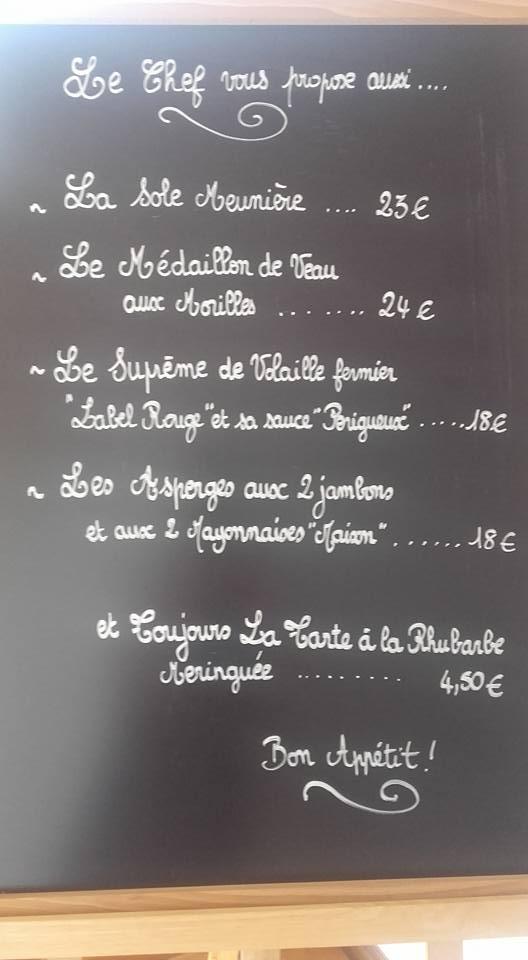 Le Chef vous propose aussi....
~ La Sole Meunière .... 23€
~ Le Médaillon de Veau
aux Morilles ........ 24€
~ Le Suprême de Volaille fermier
"Label Rouge" et sa sauce "Périgueux" .....18€
~ Les Asperges aux 2 jambons
et aux 2 Mayonnaises "Maison" ...... 18€
et Toujours La Tarte à la Rhubarbe
Meringuée ......... 4,50€
Bon Appétit !